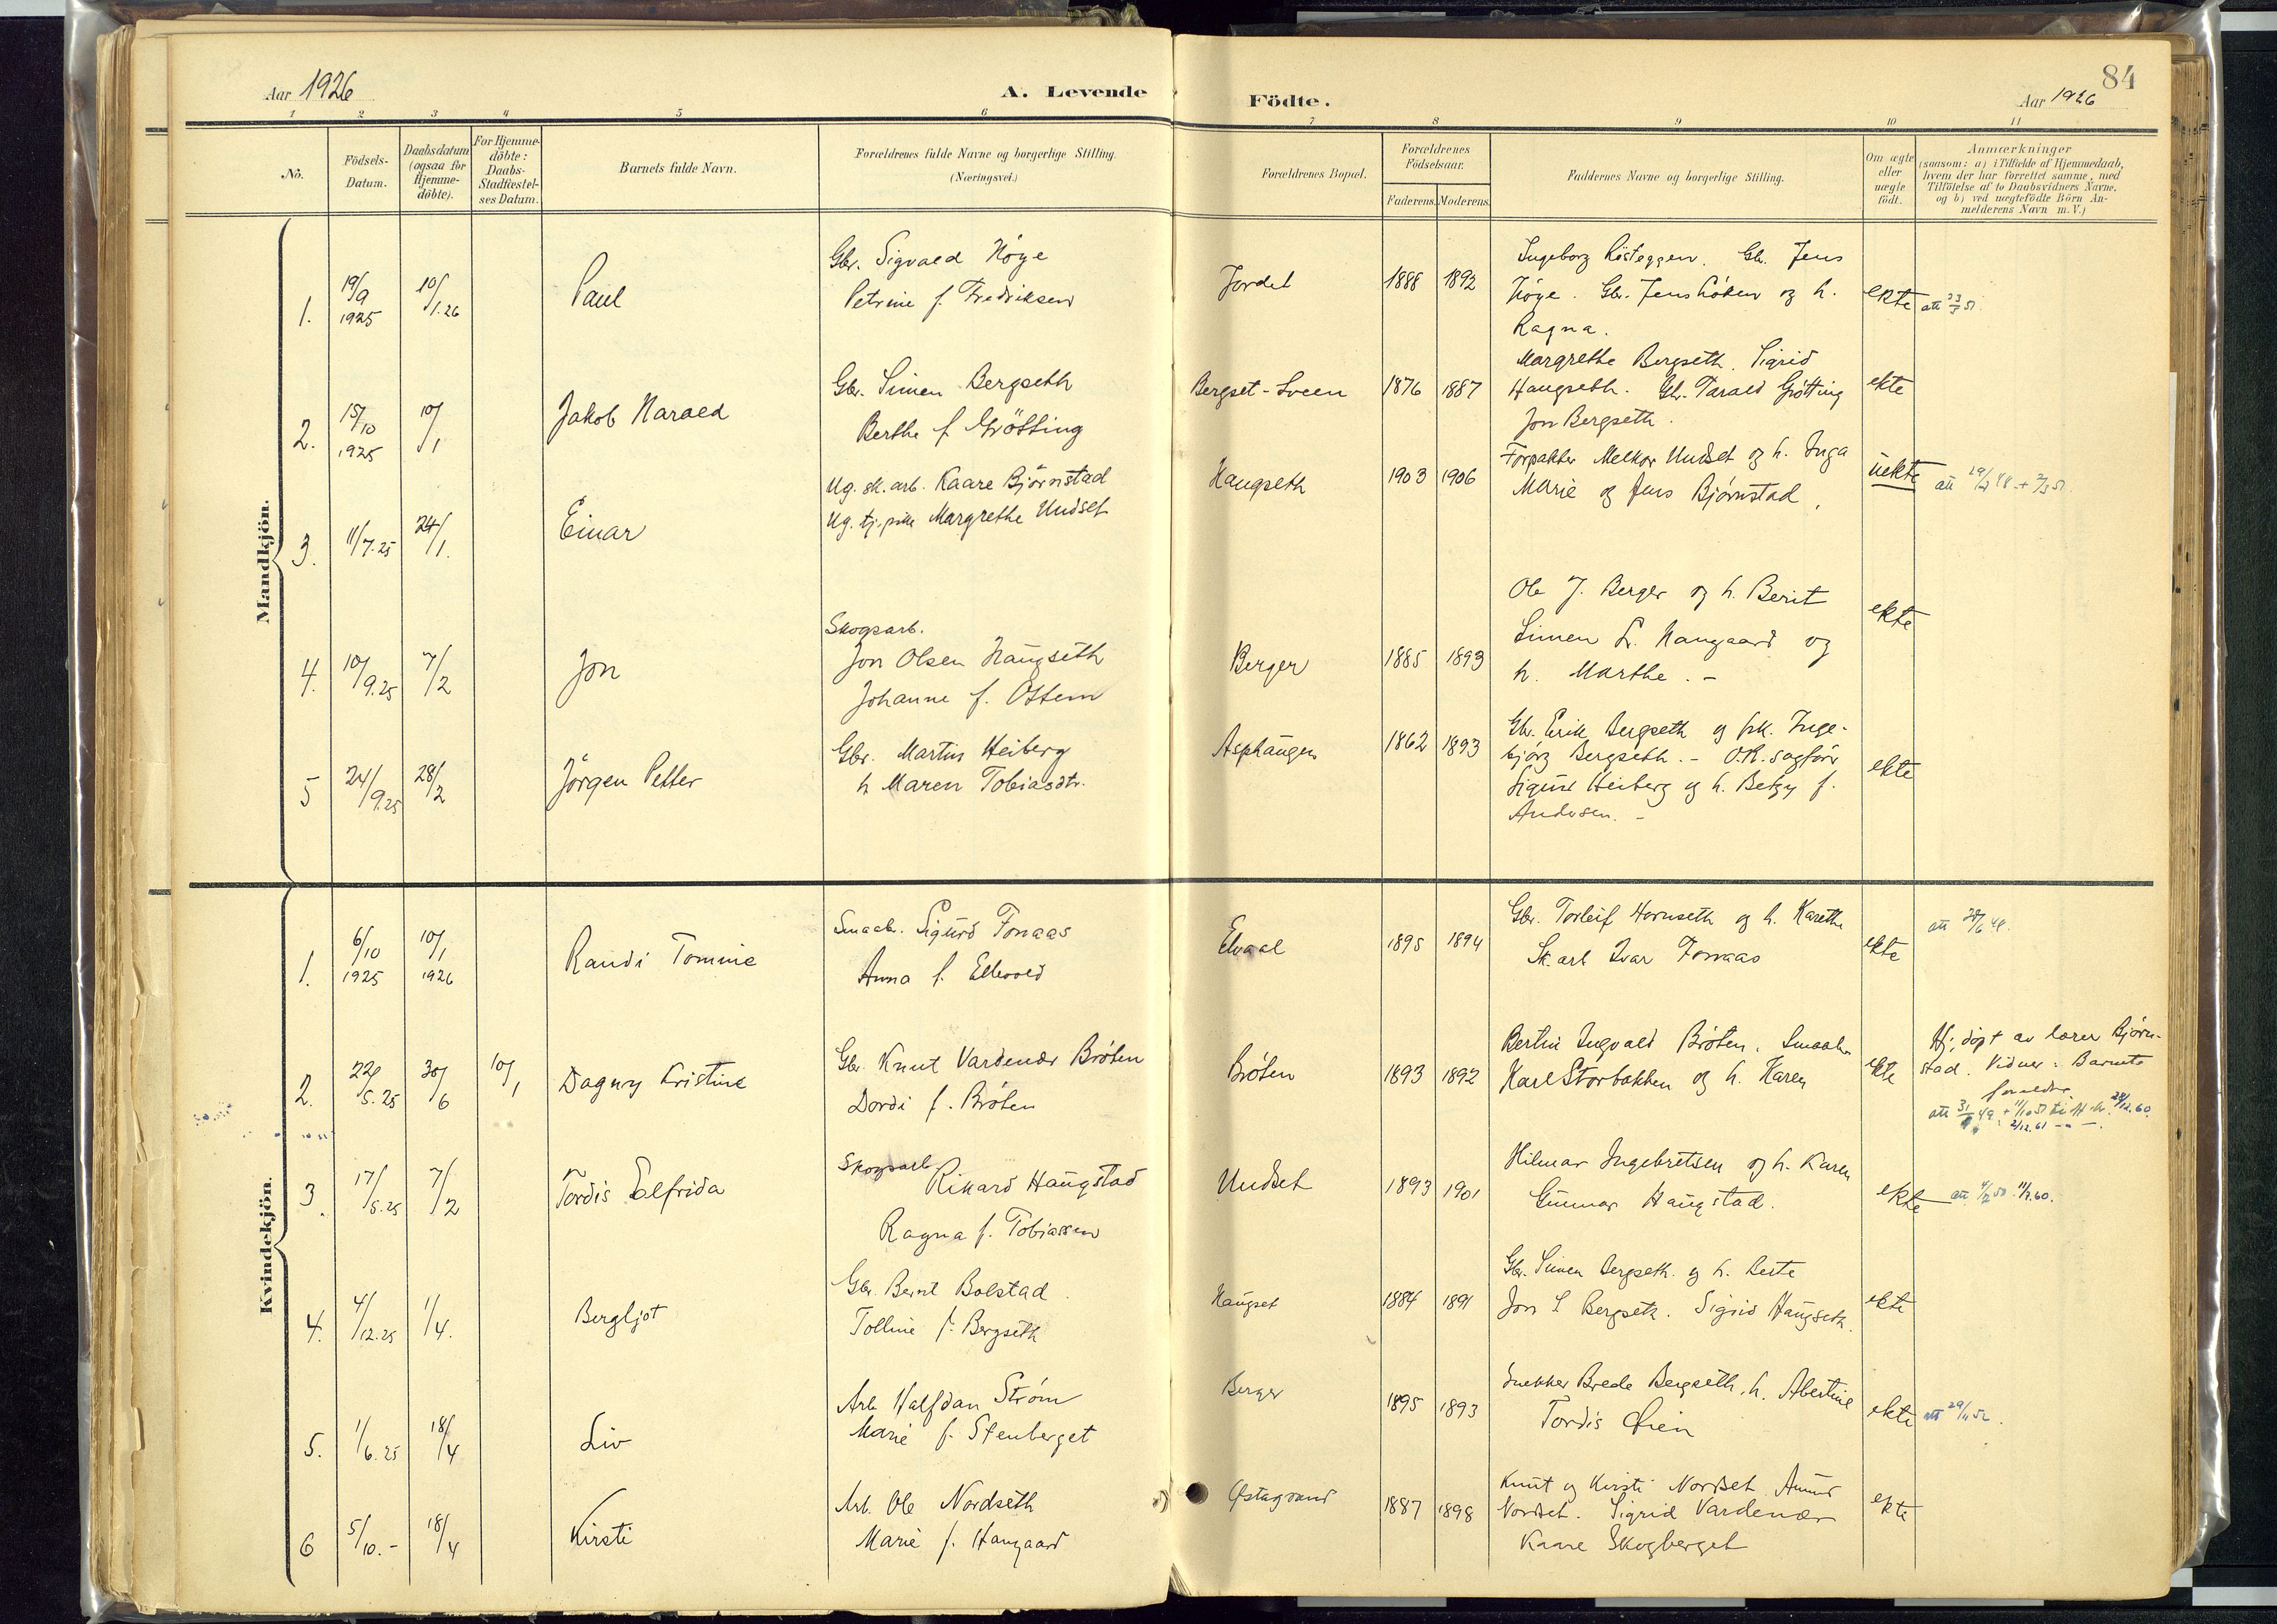 Aar 1926
A. Levende
Födte.
84
Aar 1926
1 2 3 4 5 6 7 8 9 10 11
No.
Födsels-
Datum.
Daabsdatum
(ogsaa for
Hjemme-
döbte).
For Hjemme-
döbte:
Daabs-
Stadfæstel-
ses Datum.
Barnets fulde Navn.
Forældrenes fulde Navne og borgerlige Stilling.
(Næringsvei.)
Forældrenes Bopæl.
Forældrenes
Födselsaar.
Faderens. Moderens.
Faddernes Navne og borgerlige Stilling.
Om ægte
eller
uægte
födt.
Anmærkninger
(saasom: a) i Tilfælde af Hjemmedaab,
hvem der har forrettet samme, med
Tilföielse af to Daabsvidners Navne,
og b) ved uægtefödte Börn An-
melderens Navn m. V.)
Mandkjön.
1.
19/9
1925
10/1.26
Paul
Gbr. Sigvald Höye
Petrine f. Fredriksen
Jordet
1888 1892
Ingeborg Löseggen. Gbr. Jens
Höye. Gbr. Jens Löken og h.
Ragna.
ekte
att 23/3 51.
2.
15/10
1925
10/1
Jakob Harald
Gbr. Simen Bergseth
Berthe f. Grötting
Bergset-Sveen
1876 1887
Margrethe Bergseth. Sigrid
Haugseth. Gbr. Tarald Grötting
Jon Bergseth.
ekte
3.
11/7.25
24/1.
Einar
Ug. sk. arb. Kaare Björnstad
Ug. tj. pike Margrethe Undset
Haugseth
1903 1906
Forpakter Melkor Undset og h. Inga
Marie og Jens Bjørnstad.
uekte
4.
10/9.25
7/2
Jon
Skogsarb.
Jon Olsen Haugseth
Johanne f. Ostem
Berger
1885 1893
Ole J. Berger og h. Berit
Simen L. Haugaard og
h. Marthe. -
ekte
5
24/9.25
28/2
Jörgen Petter
Gbr. Martin Heiberg
h Maren Tobiasdtr.
Asphaugen
1862 1893
Gbr. Erik Bergseth og frk. Inge-
björg Bergseth. - O.R. sagförer
Sigurd Heiberg og h. Betzy f.
Andersen. -
ekte
Kvindekjön.
1.
6/10
1925
10/1
1926
Randi Tomine
Smaabr. Sigurd Fonaas
Anna f. Ellevold
Elvaal
1895 1894
Gbr. Torleif Hornseth og h. Karethe
Sk. arb Ivar Fonaas
ekte
att 28/6 48.
2.
22/5.25
30/6
10/1
Dagny Kristine
Gbr. Knut Vardenær Bröten
Dordi f. Bröten
Bröten
1893 1892
Bertin Ingvald Bröten. Smaabr.
Karl Storbakken og h. Karen
ekte
Hj. döpt av lærer Björn-
stad. Vidner: Barnets
foreldre
3.
17/5.25
7/2
Tordis Alfrida
Skogsarb
Rikard Haugstad
Ragna f. Tobiassen
Undset
1893 1901
Hilmar Ingebretsen og h. Karen
Gunnar Haugstad.
ekte
4.
4/12.25
1/4.
Bergljot
Gbr. Bernt Bolstad.
Tolline f. Bergseth
Haugset
1884 1891
Gbr. Simen Bergseth. og h. Berte
Jon S Bergseth. Sigrid Haugseth.
ekte
5.
1/6.25
18/4
Liv
Arb Halfdan Ström
Marie f. Stenberget
Berger
1895 1893
Snekker Brede Bergseth, h. Abertine
Tordis Øien
ekte
att 29/11 52.
6
5/10.-
18/4
Kirsti
Arb. Ole Nordseth
Marie f. Haugaard
Østagrand
1887 1898
Knut og Kirsti Nordset. Amund
Nordset. Sigrid Vardenær
Kaare Skogberget
ekte